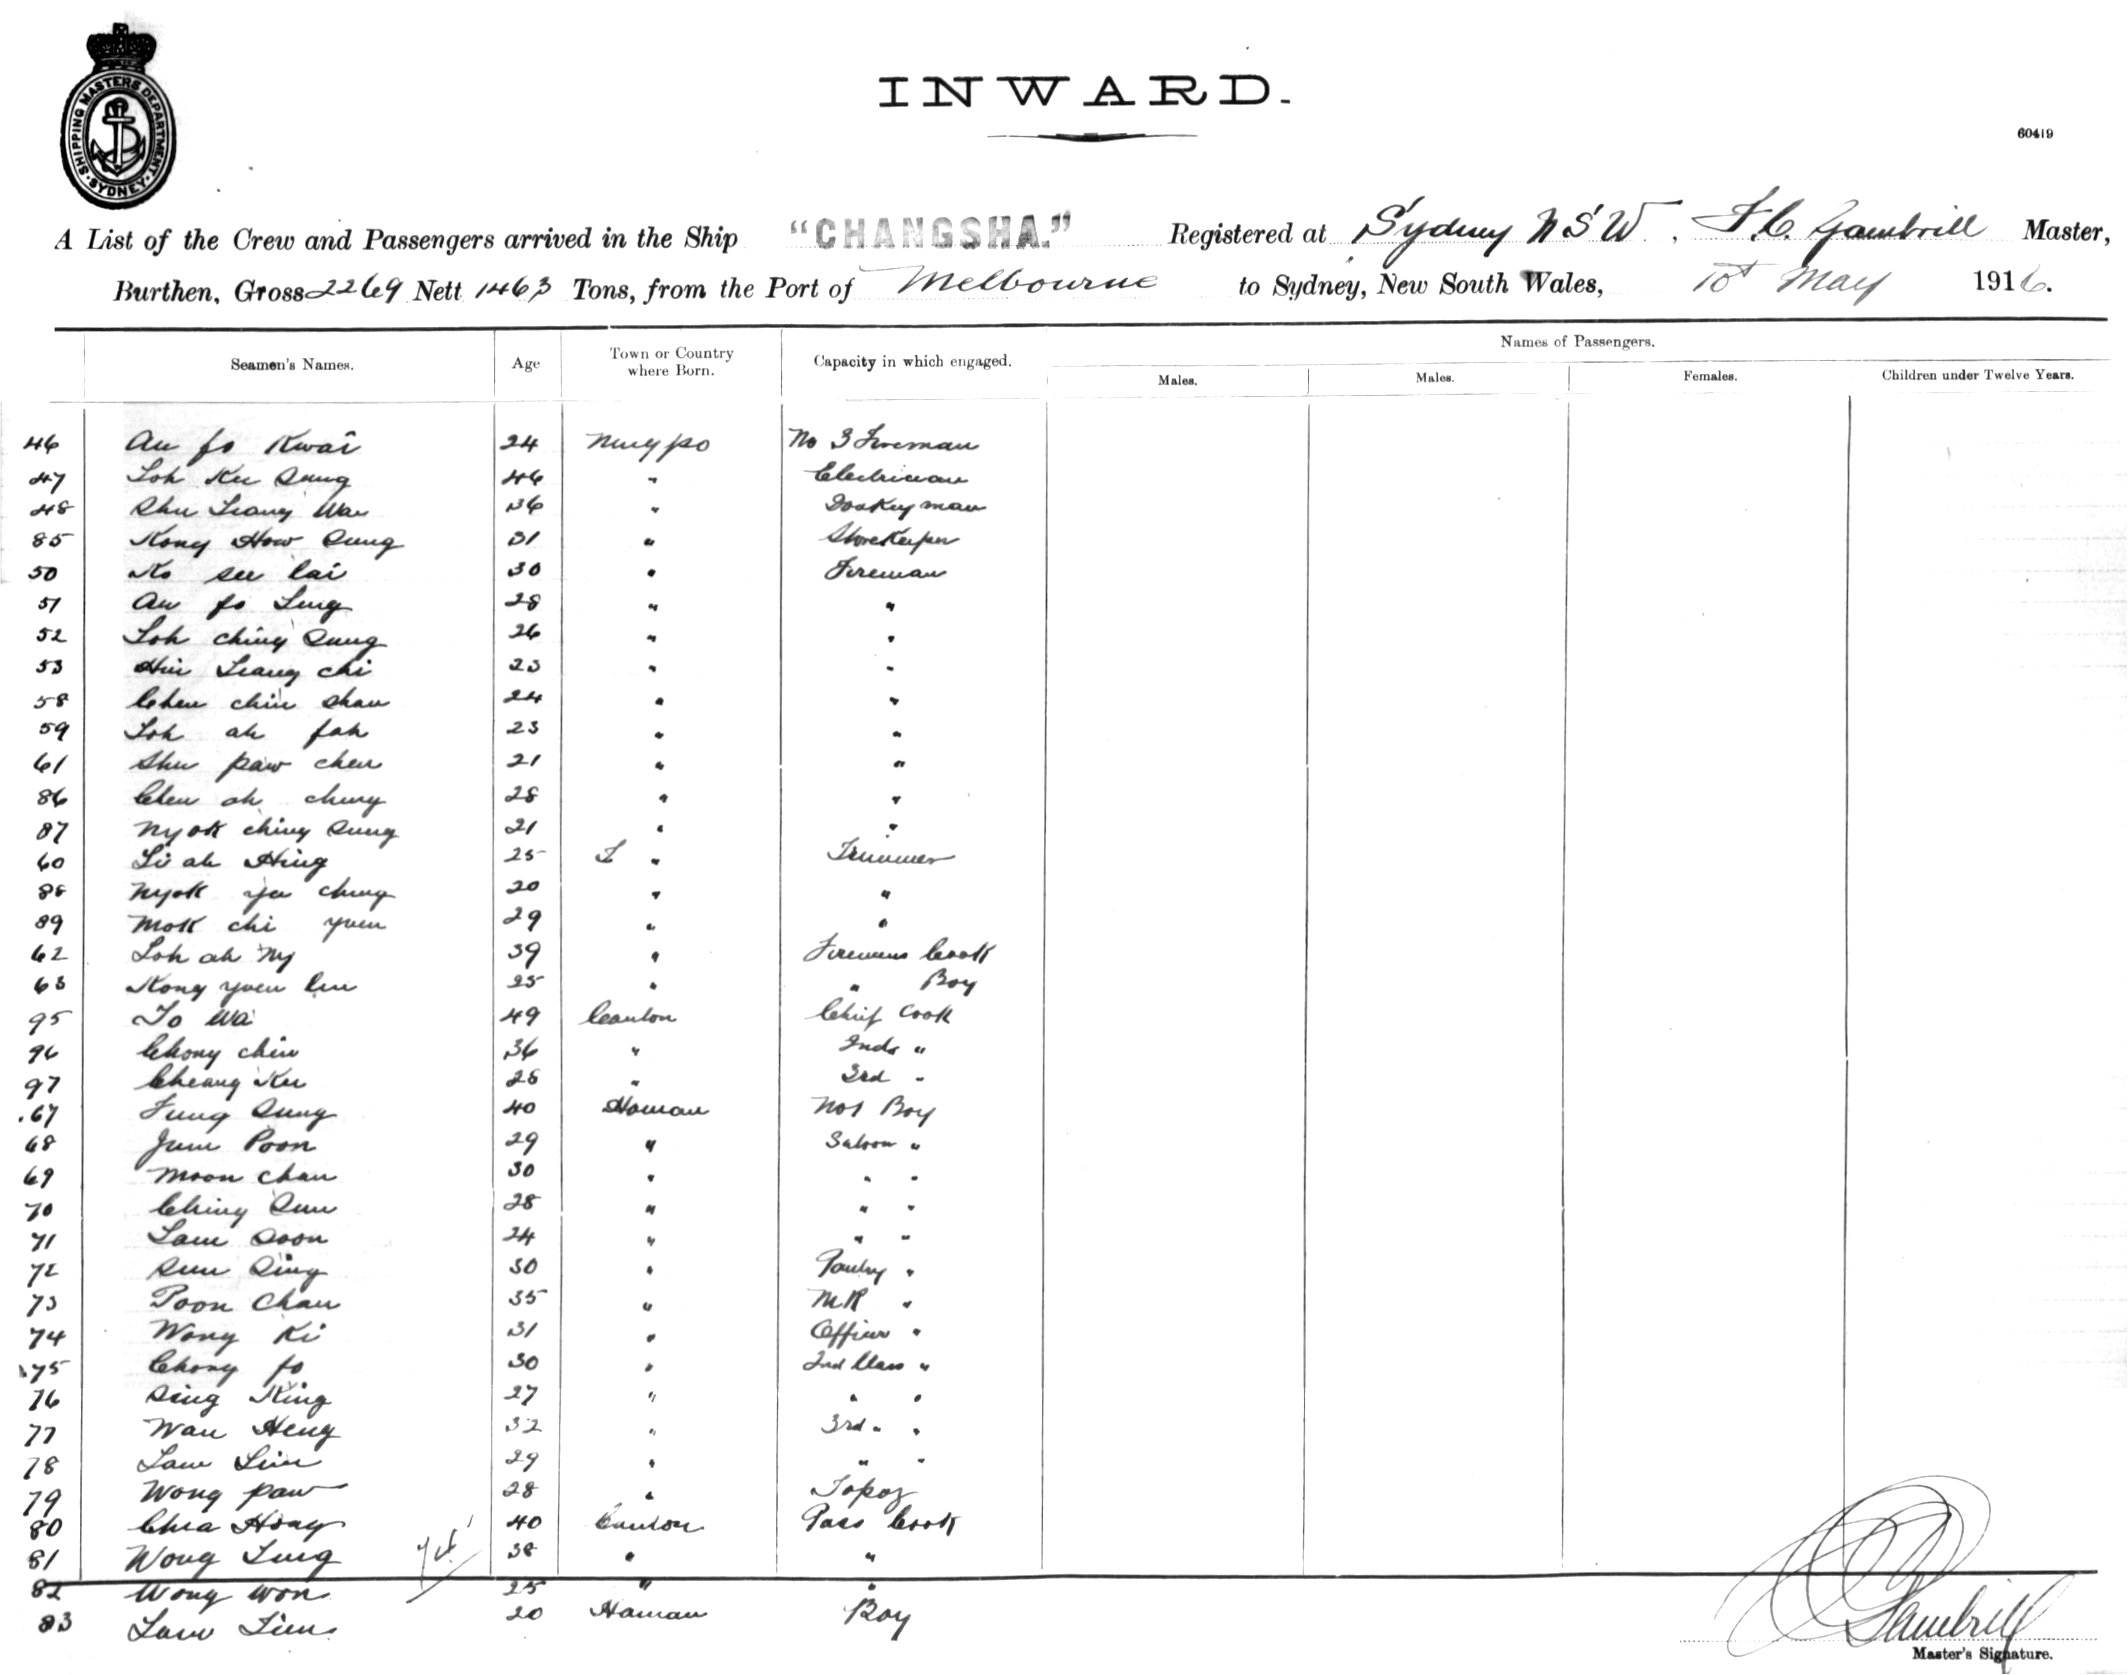 SHIPPING MASTERS DEPARTMENT · SYDNEY ·
INWARD.
60419
A List of the Crew and Passengers arrived in the Ship "CHANGSHA." Registered at Sydney N S W, F. C. Gambrill Master,
Burthen, Gross 2269 Nett 1463 Tons, from the Port of Melbourne to Sydney, New South Wales, 10th May 1916.
Seamen's Names. Age Town or Country where Born. Capacity in which engaged. Names of Passengers.
Males. Males. Females. Children under Twelve Years.
46 Au fo Kwai 24 Ningpo No 3 Fireman
47 Loh Ku Sung 46 " Electrician
48 Shu Liang Wai 36 " Donkeyman
85 Kong How Sung 31 " Storekeeper
50 Ko see lai 30 " Fireman
51 Au fo Ling 28 " "
52 Loh ching Sung 26 " "
53 Hui Liang chi 23 " "
58 Chen chin shan 24 " "
59 Loh ah fah 23 " "
61 Shu paw chen 21 " "
86 Chen ah chung 28 " "
87 Nyok ching Sung 21 " "
60 Li ah Hing 25 " Trimmer
88 Nyok ya chung 20 " "
89 Mok chi yuen 29 " "
62 Loh ah Ny 39 " Firemens Cook
63 Kong yuen lin 25 " " Boy
95 To Wa 49 Canton Chief Cook
96 Chong chin 36 " 2nd "
97 Cheang Ku 28 " 3rd "
67 Fung Sung 40 Hainan No 1 Boy
68 Jum Poon 29 " Saloon "
69 Moon Chan 30 " " "
70 Ching Sun 28 " " "
71 Lam Soon 24 " " "
72 Sun Sing 30 " Pantry "
73 Poon Chan 35 " M R "
74 Wong Ki 31 " Officer "
75 Chong fo 30 " 2nd Class "
76 Sing King 27 " " "
77 Wan Heng 32 " 3rd " "
78 Lam Lim 29 " " "
79 Wong paw 28 " Topaz
80 Chea Hong 40 Canton Pass Cook
81 Wong Ling 38 " "
82 Wong won 25 " "
83 Lam Lim 20 Hainan Boy
Gambrill
Master's Signature.